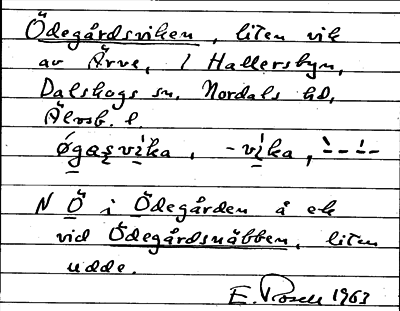 Ödegårdsviken, liten vik
av Ärve, i Hallersbyn,
Dalskogs sn, Nordals hd,
Älvsb. l.
øgaşvika, -vika, ̀--́-
N Ö i Ödegården å ek
vid Ödegårdsnäbben, liten
udde.
E. Rosell 1963